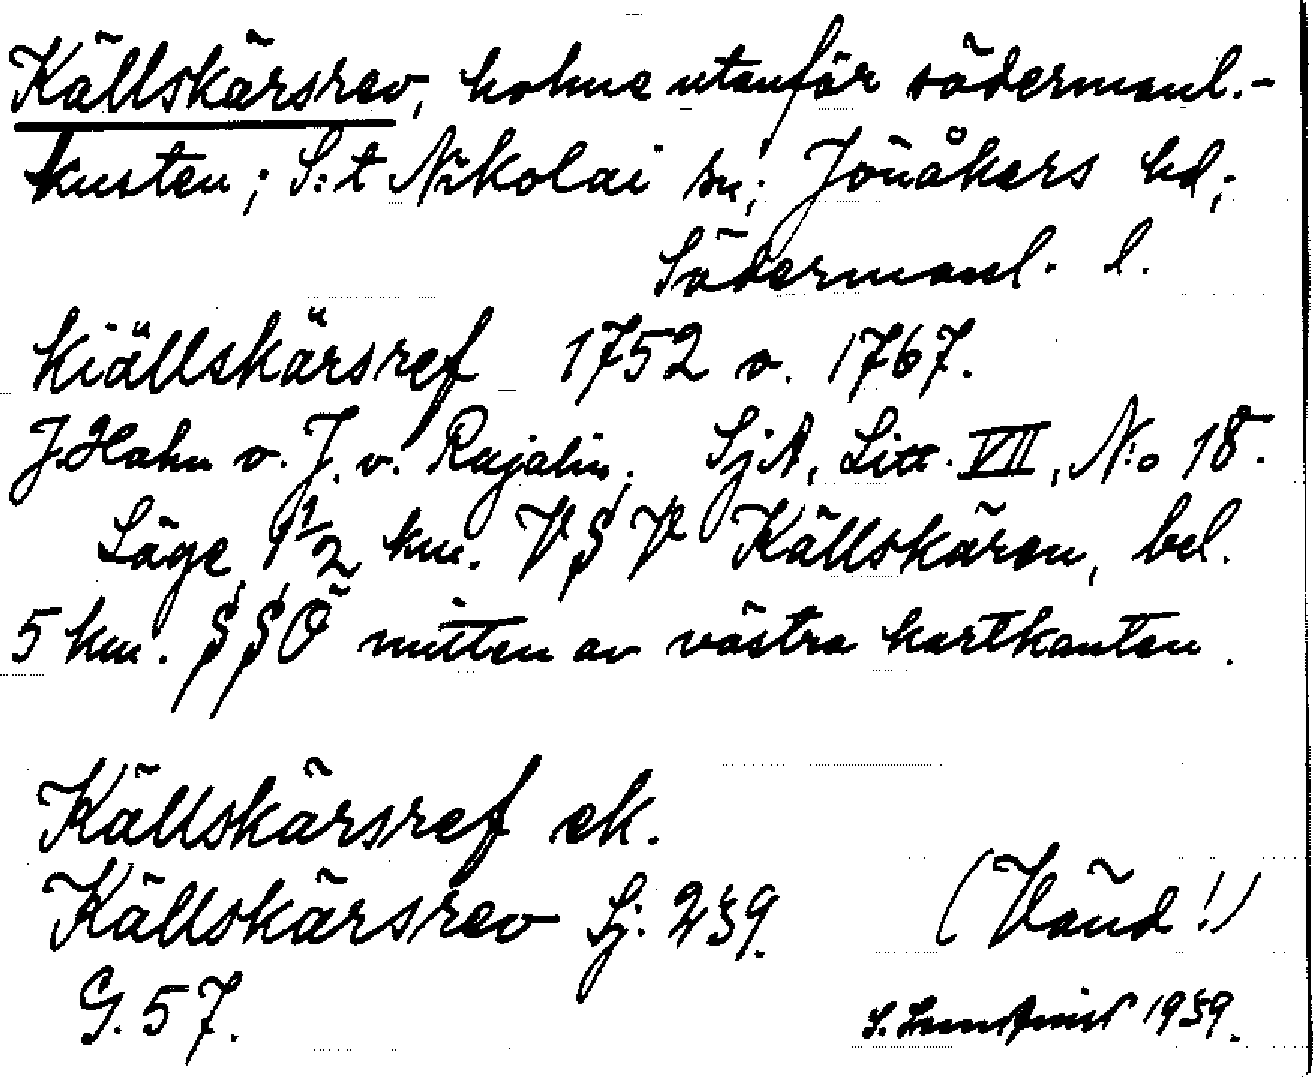 Källskärsrev, holme utanför södermanl.-
kusten; S:t Nikolai sn; Jönåkers hd;
Södermanl. l.
Kiällskärsref 1752 o. 1767.
J. Hahn o. J. v. Rajalin. SjA, Litt. VII, N:o 18.
Läge 1 1/2 km. VSV Källskären, bel.
5 km. SSÖ mitten av västra kartkanten.
Källskärsref ek.
Källskärsrev Sj: 239.
(Vänd!)
G. 57.
1939.